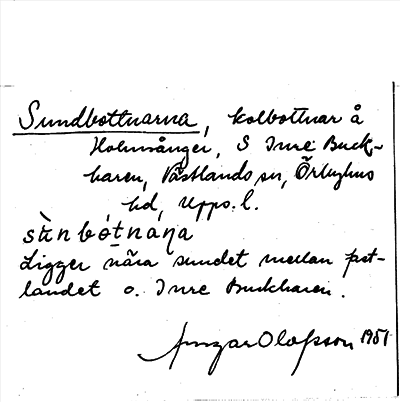 Sundbottnarna, kolbottnar å
Holmsånger, S Inre Buck-
haren, Västlands sn, Örbyhus
hd, Upps. l.
sùnbótnaṇa
Ligger nära sundet mellan fast-
landet o. Inre Buckharen.
Ansgar Olofsson 1951